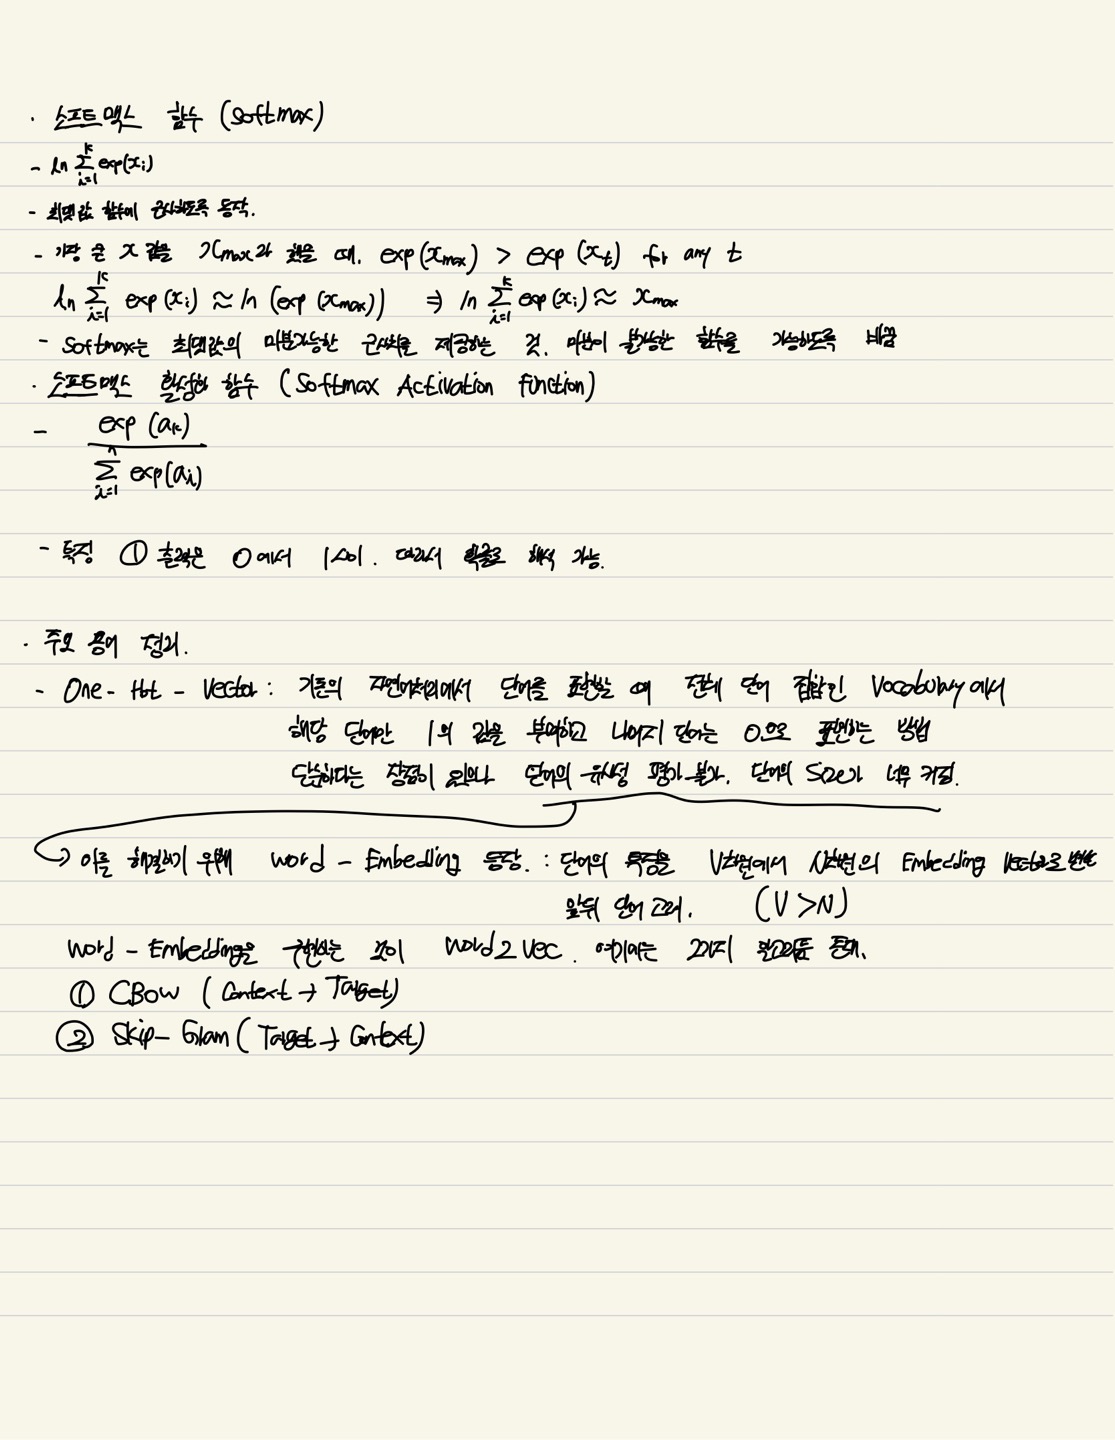 · 소프트맥스 함수 (Softmax)
- ln Σ_{i=1}^{k} exp(x_i)
- 최댓값 함수에 근사하도록 동작.
- 가장 큰 x 값을 x_max라 했을 때. exp(x_max) > exp(x_t) for any t
ln Σ_{i=1}^{k} exp(x_i) ≈ ln (exp(x_max)) ⇒ ln Σ_{i=1}^{k} exp(x_i) ≈ x_max
- Softmax는 최댓값의 미분가능한 근사치를 제공하는 것. 미분이 불가능한 함수를 가능하도록 바꿈
· 소프트맥스 활성화 함수 (Softmax Activation Function)
- exp(a_k) / Σ_{i=1}^{n} exp(a_i)
- 특징 ① 출력은 0에서 1사이. 따라서 확률로 해석 가능.
· 주요 용어 정리.
- One-Hot-Vector : 기존의 자연어처리에서 단어를 표현할 때 전체 단어 집합인 Vocabulary에서
해당 단어만 1의 값을 부여하고 나머지 단어는 0으로 표현하는 방법
단순하다는 장점이 있으나 단어의 유사성 평가 불가. 단어의 Size가 너무 커짐.
→ 이를 해결하기 위해 word-Embedding 등장. : 단어의 특징을 V차원에서 N차원의 Embedding Vector로 변환
앞뒤 단어 고려. (V>N)
Word-Embedding을 구현하는 것이 Word2Vec. 여기에는 2가지 알고리듬 존재.
① CBOW (Context → Target)
② Skip-Gram (Target → Context)